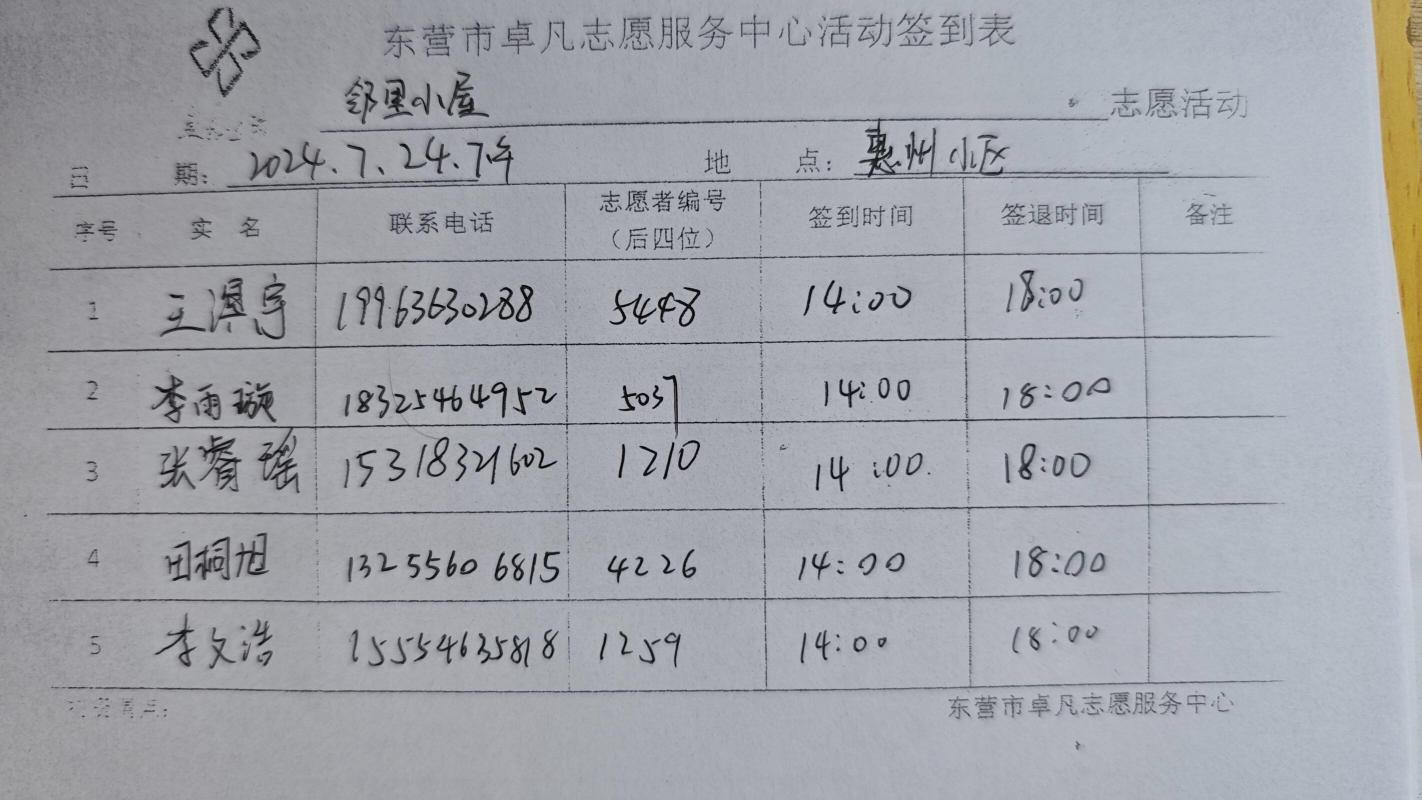 东营市卓凡志愿服务中心活动签到表
邻里小屋 志愿活动
日 期：2024.7.24.下午 地 点：惠州小区
序号 实 名 联系电话 志愿者编号（后四位） 签到时间 签退时间 备注
1 王淏宇 19963630288 5448 14:00 18:00
2 李雨璇 18325464952 5037 14:00 18:00
3 张睿瑶 15318321602 1210 14:00 18:00
4 田桐旭 13255606815 4226 14:00 18:00
5 李文浩 15554635818 1259 14:00 18:00
东营市卓凡志愿服务中心